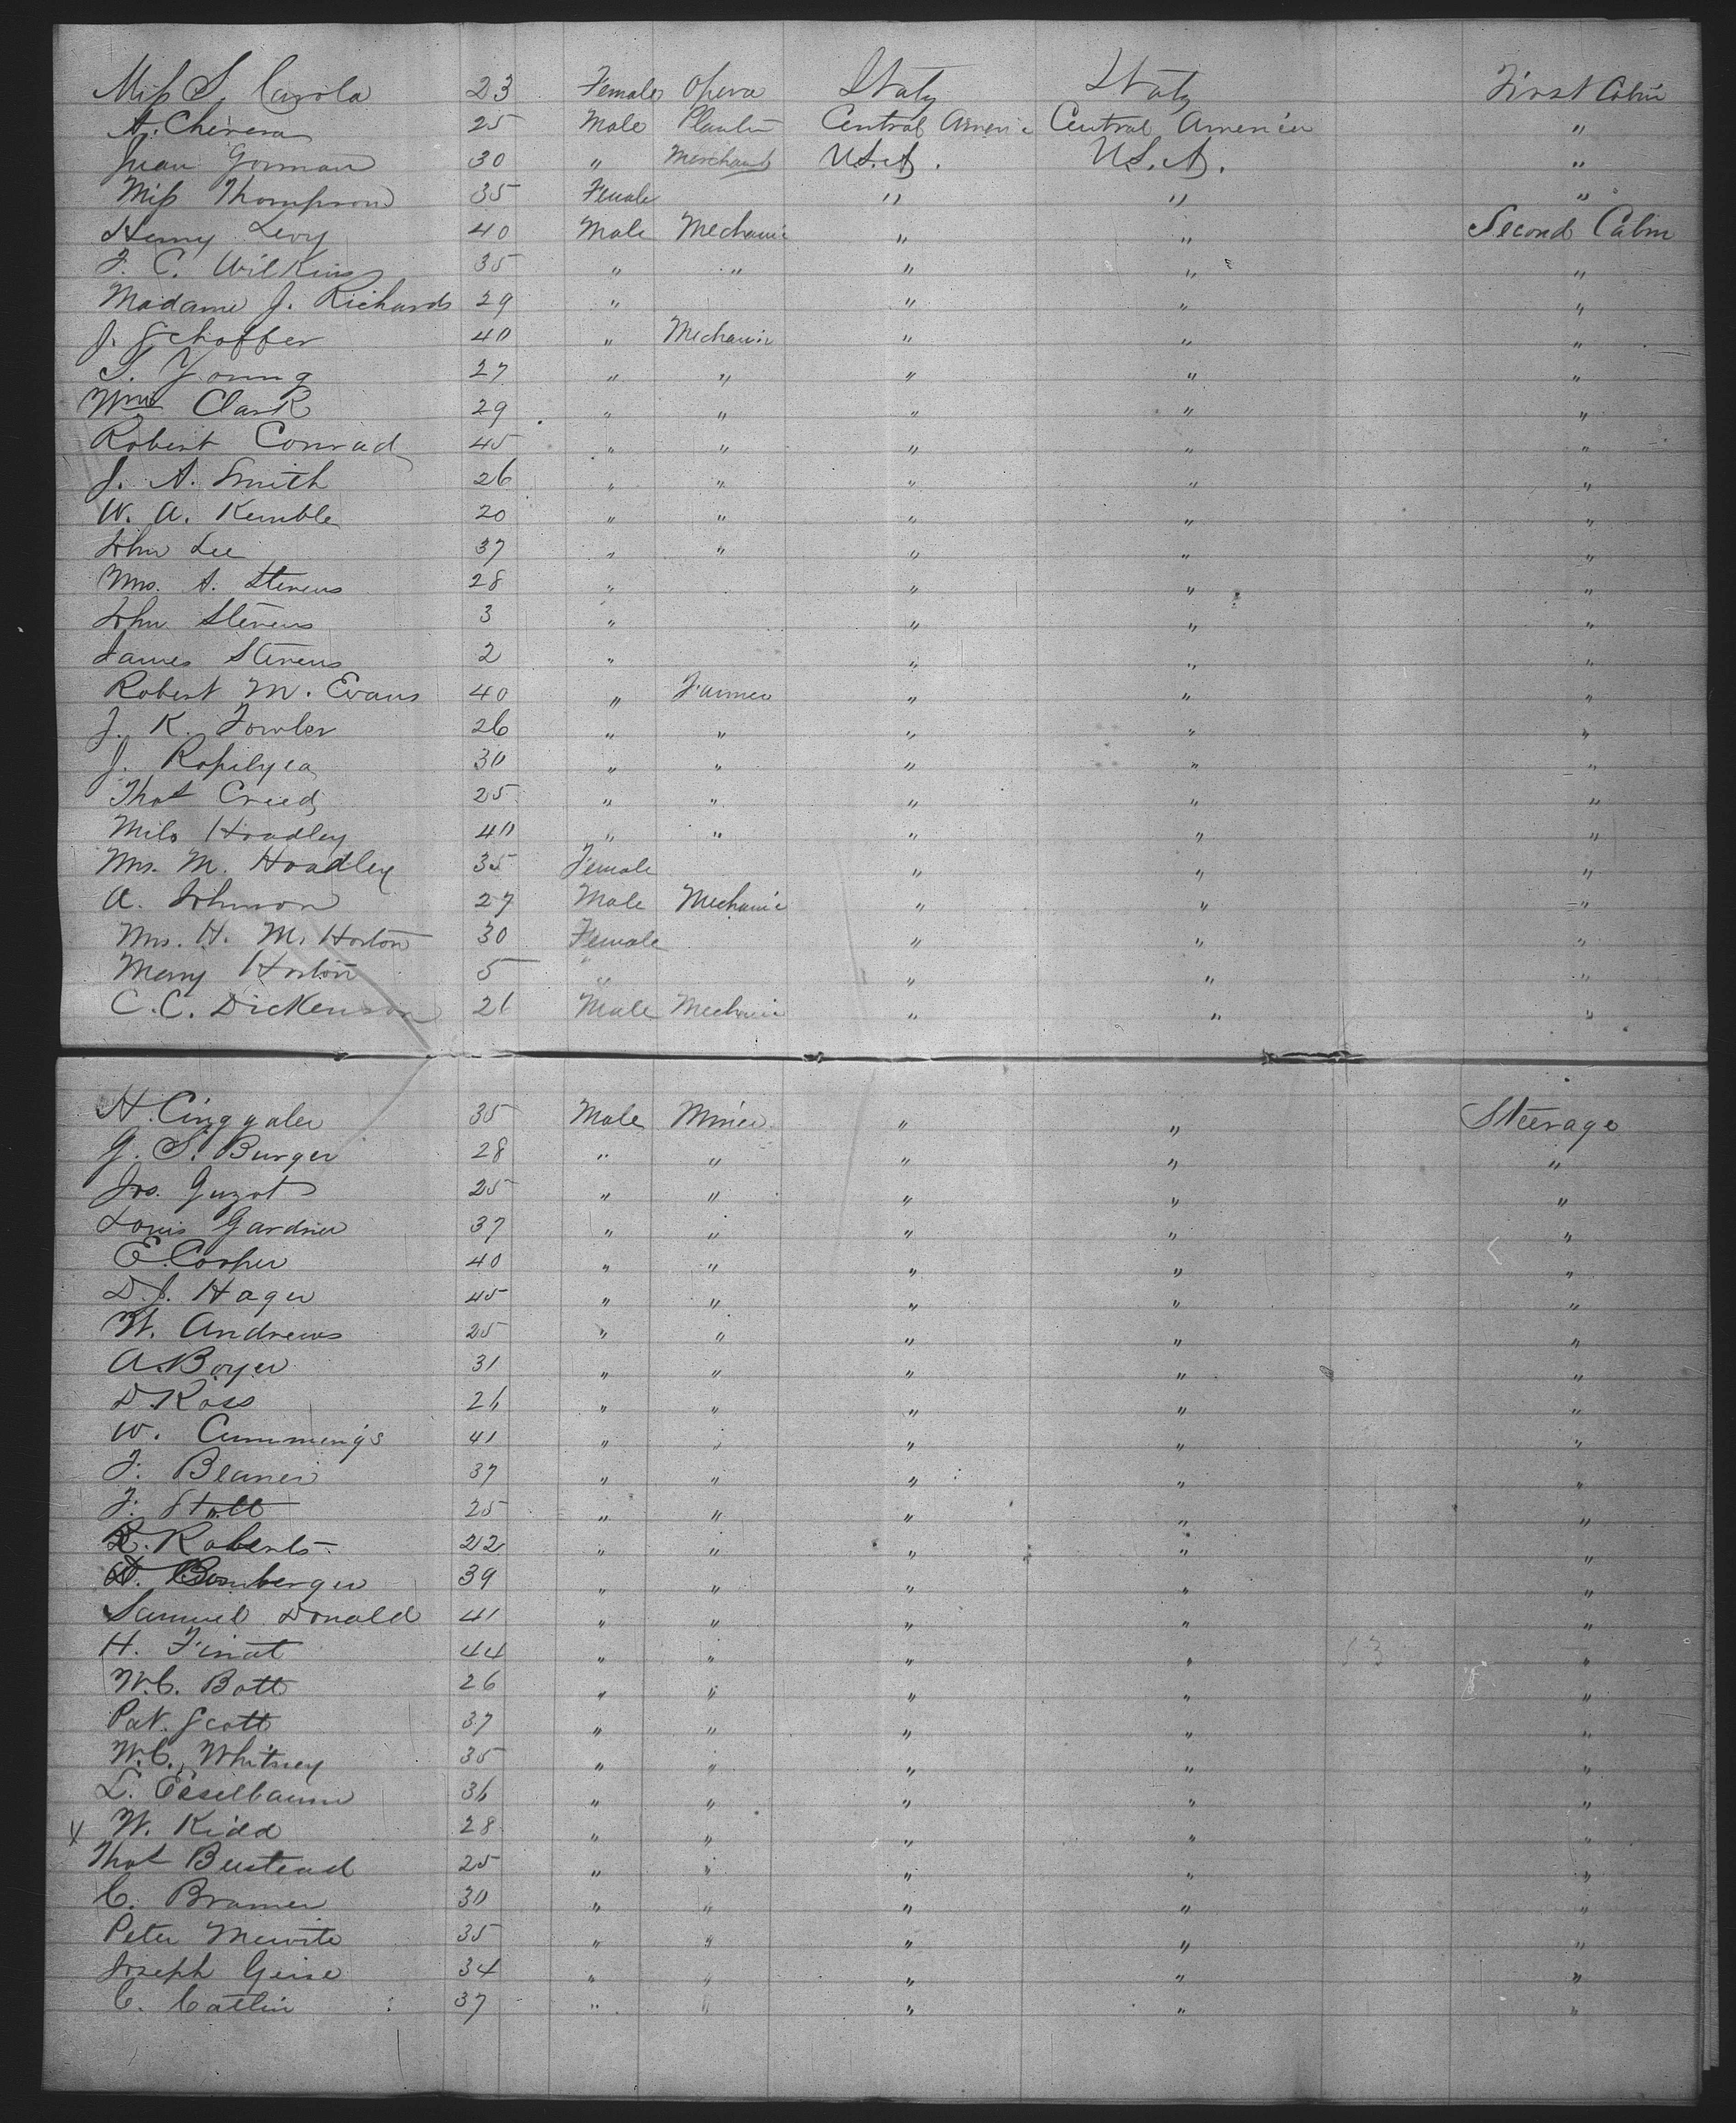 Miss S. Carola 23 Female Opera Italy Italy First Cabin
A. Chevera 25 Male Planter Central Americ Central America "
Juan Gorman 30 " Merchant U.S.A. U.S.A. "
Miss Thompson 35 Female " " "
Henry Levy 40 Male Mechanic " " Second Cabin
F. C. Wilkins 35 " " " " "
Madame J. Richards 29 " " " "
J. Schaffer 40 " Mechanic " " "
T. Young 27 " " " " "
Wm Clark 29 " " " " "
Robert Conrad 45 " " " " "
J. A. Smith 26 " " " " "
W. A. Kemble 20 " " " " "
John Lee 37 " " " " "
Mrs. A. Stevens 28 " " " "
John Stevens 3 " " " "
James Stevens 2 " " " "
Robert M. Evans 40 " Farmer " " "
J. K. Fowler 26 " " " " "
J. 30 " " " " "
Thos Creed 25 " " " " "
Milo Hoadley 40 " " " " "
Mrs. M. Hoadley 35 Female " " "
A. Johnson 27 Male Mechanic " " "
Mrs. H. M. Horton 30 Female " " "
Merry Horton 5 " " " "
C. C. Dickenson 26 Male Mechanic " " "
H. 35 Male Miner " " Steerage
G. S. Burger 28 " " " " "
Jos. Guzot 25 " " " " "
Louis Gardner 37 " " " " "
E. Cooper 40 " " " " "
D. J. Hager 45 " " " " "
W. Andrews 25 " " " " "
A. Boyer 31 " " " " "
D. Ross 26 " " " " "
W. Cummings 41 " " " " "
F. 37 " " " " "
F. Stott 25 " " " " "
R. Roberts 22 " " " " "
39 " " " " "
Samuel Donald 41 " " " " "
H. Finat 44 " " " " "
W. C. Bott 26 " " " " "
Pat. Scott 37 " " " " "
W. C. Whitney 35 " " " " "
L. Esselbaum 36 " " " " "
W. Kidd 28 " " " " "
Thos Bustead 25 " " " " "
C. Bramer 30 " " " " "
Peter 35 " " " " "
Joseph Geise 34 " " " " "
C. Catlin 37 " " " " "